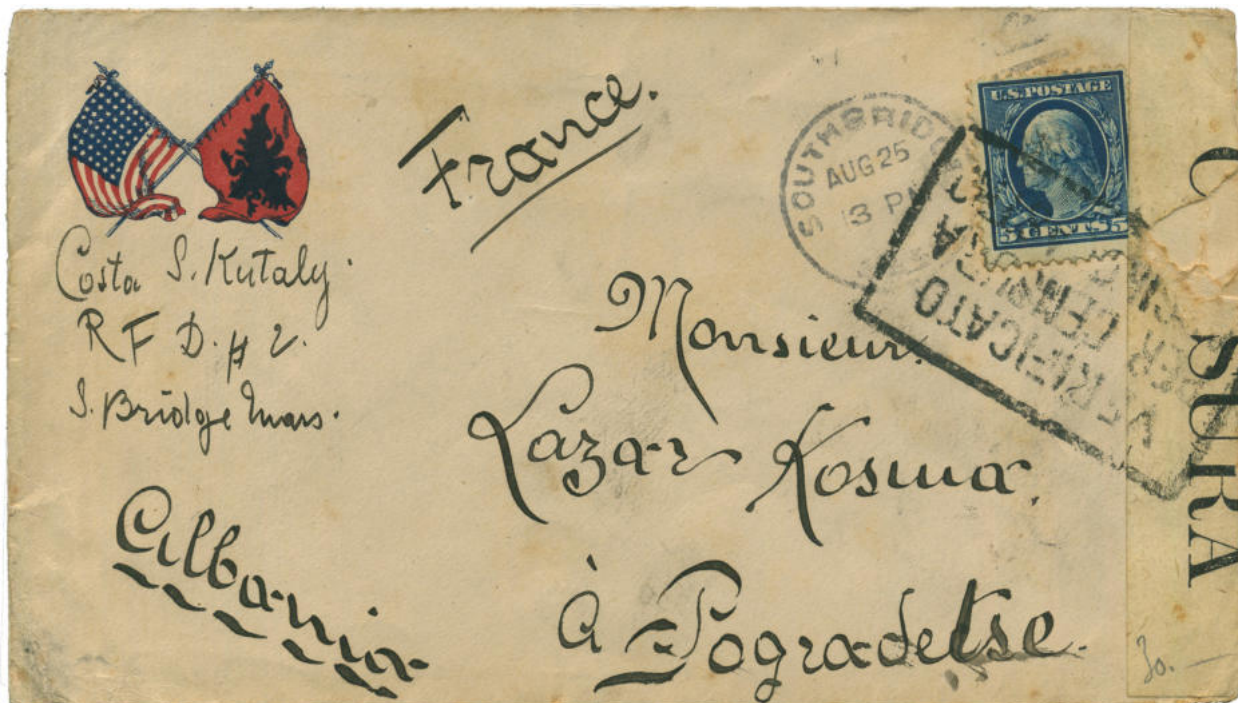 France.
Costa S. Kutaly.
R F D. # 2.
S. Bridge Mass.
SOUTHBRIDGE
AUG 25
3 PM
U.S. POSTAGE
5 CENTS 5
VERIFICATO
PER CENSURA
Monsieur
Lazar Kosma.
à Pogradetse.
Albania
SURA
30.—